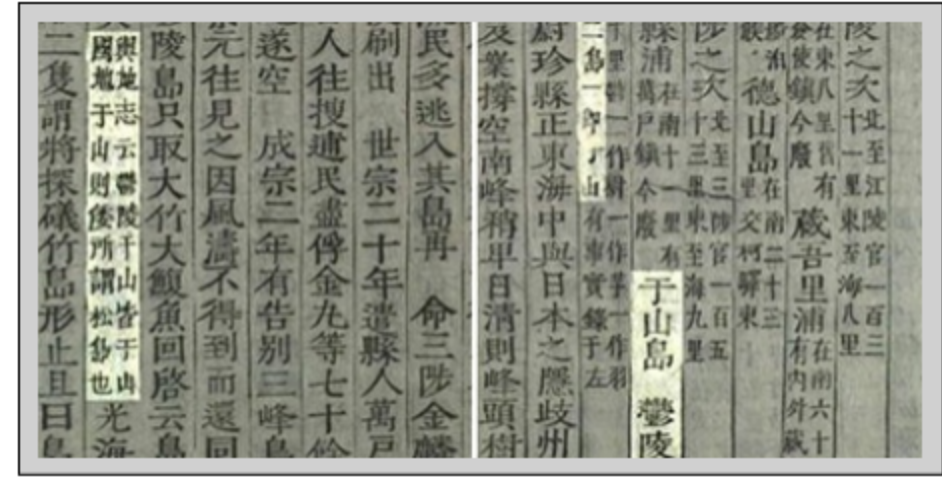 陵之次北至江陵官一百三
十一里東至海八里
在東八里舊有
僉使鎭今廢
藏吾里浦在南六十
有內外藏
德山島在南二十三
里交柯驛東
陟之次北至三陟官一百五
十三里東至海九里
縣浦在南十一里有
萬戶鎭今廢
于山島 鬱陵
十里蔚一作鬱一作芋一作羽
二島一卽于山有事實錄于左
蔚珍縣正東海中與日本之隱岐州
岌嶪撐空南峰稍卑日淸則峰頭樹
民多逃入其島再 命三陟金麟
刷出 世宗二十年遣縣人萬戶
人往搜逋民盡俘金九等七十餘
遂空 成宗二年有告別三峰島
元往見之因風濤不得到而還同
陵島只取大竹大鰒魚回啓云島
輿地志云鬱陵于山皆于山
國地于山則倭所謂松島也
光海
二隻謂將探礒竹島形止且曰島